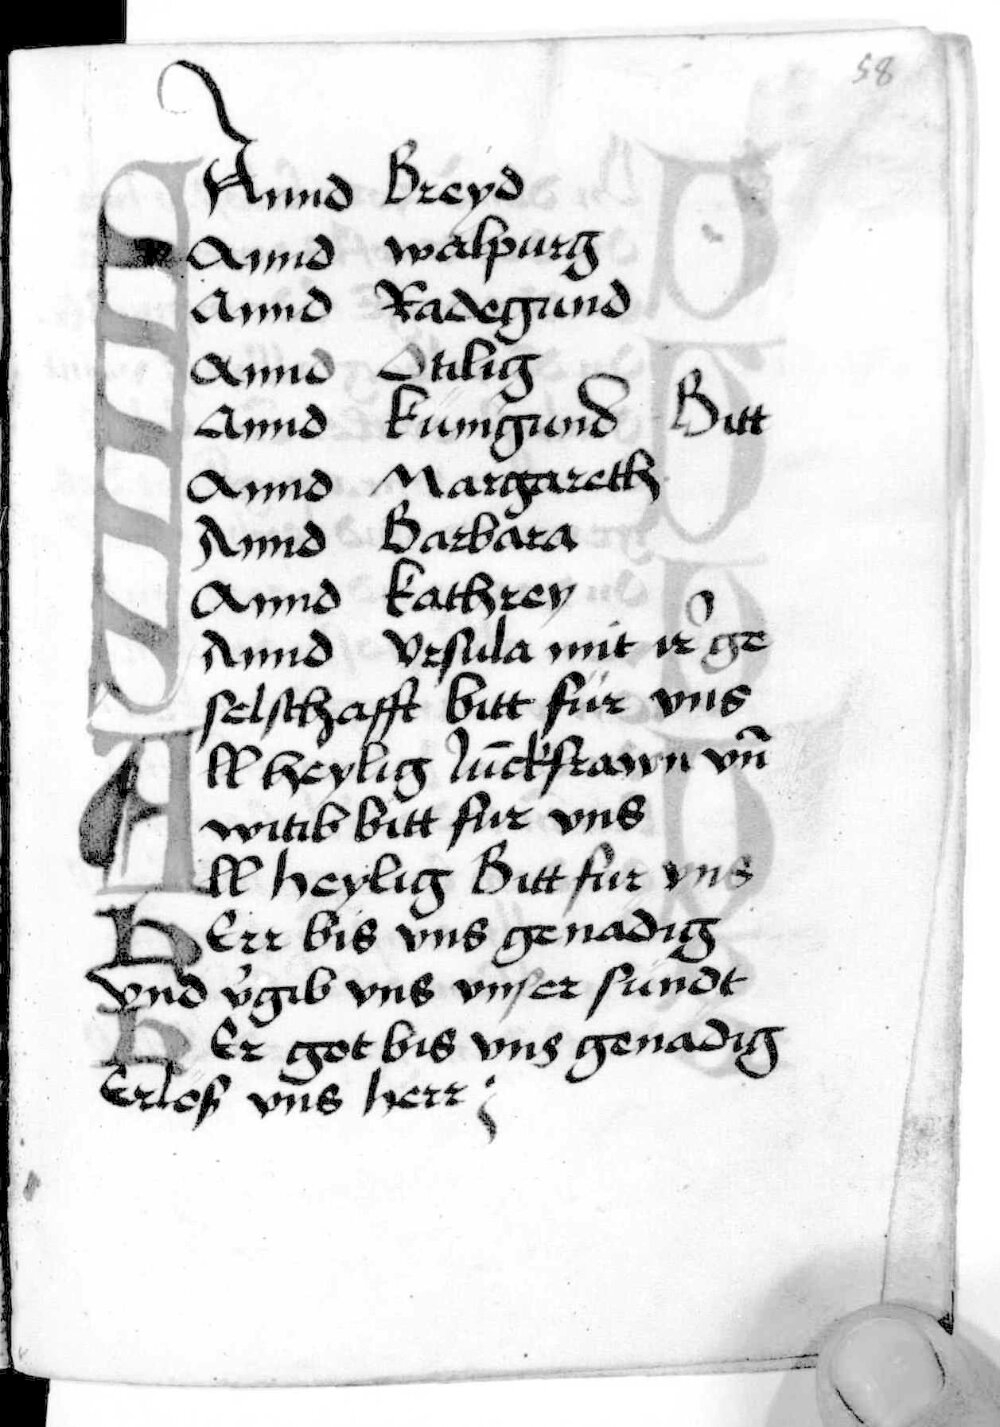 58
SAnnd Breyd
Annd walpurg
Annd Radegund
Annd Otilig
Annd kunigund Bitt
Annd Margareth
Annd Barbara
Annd kathrey
Annd vrsula mit ir ge
selschafft bitt für vns
All heylig Junckfrawn vn̄
witib bitt fur vns
All heylig Bitt fur vns
HErr bis vns genadig
vnd v̉gib vns vnser sundt
HEr got bis vns genadig
Erlós vns herr